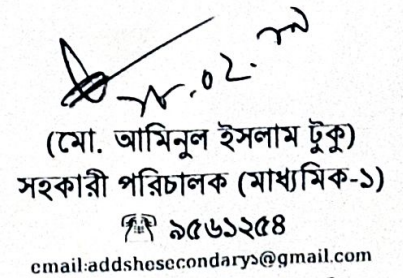 (মো. আমিনুল ইসলাম টুকু)
সহকারী পরিচালক (মাধ্যমিক-১)
☎ ৯৫৬১২৫৪
email:addshesecondary১@gmail.com